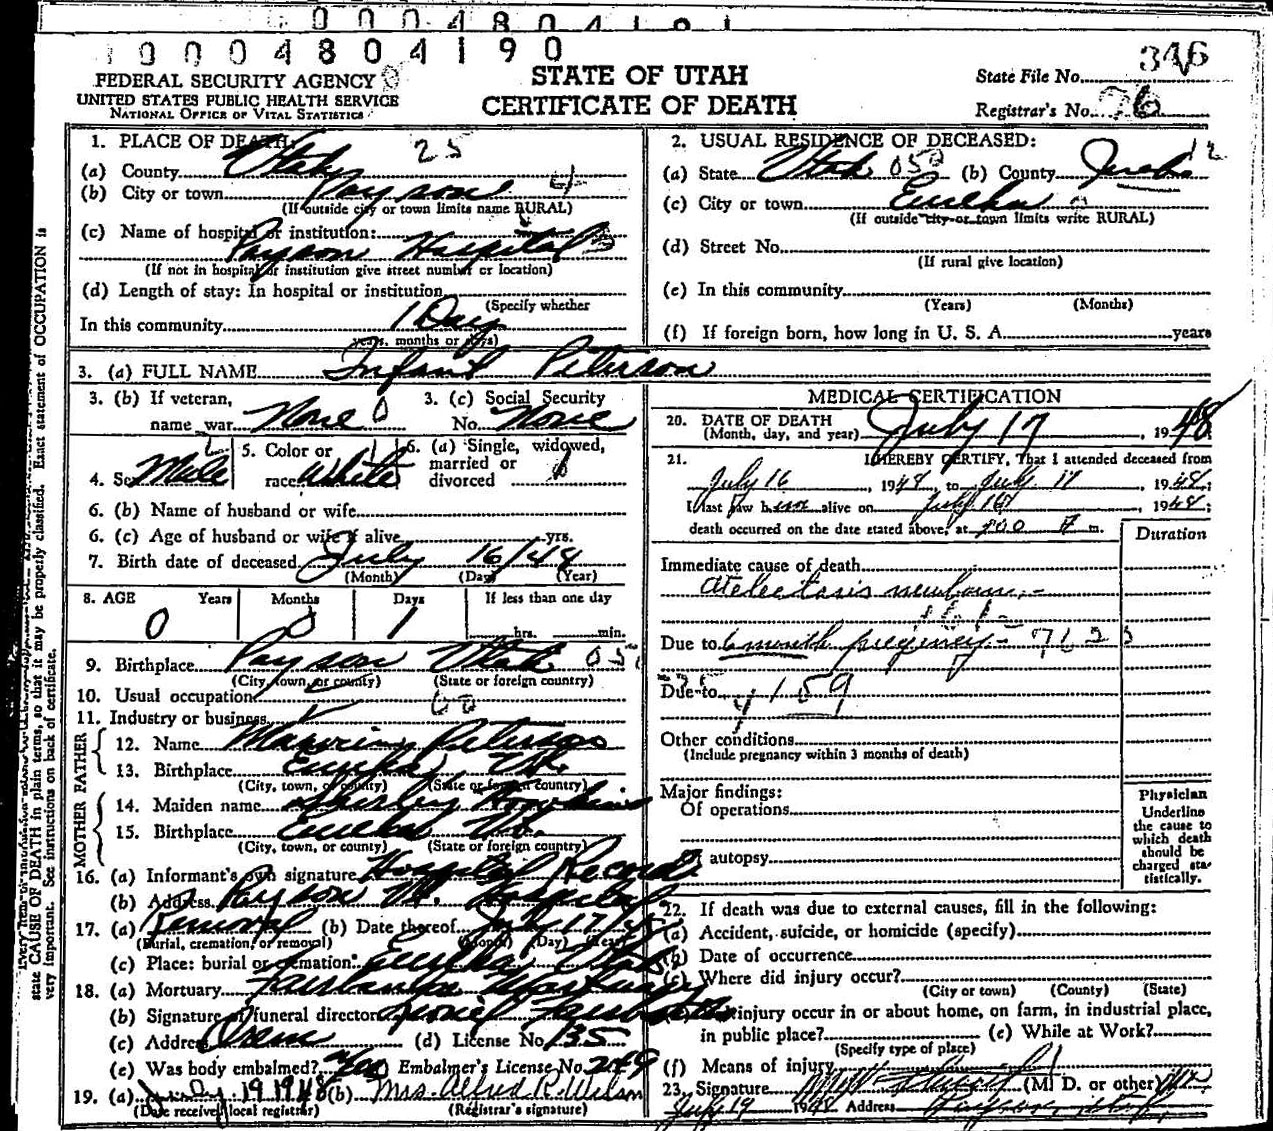 0 0 0 4 8 0 4 1 9 1
1 0 0 0 4 8 0 4 1 9 0
FEDERAL SECURITY AGENCY
UNITED STATES PUBLIC HEALTH SERVICE
NATIONAL OFFICE OF VITAL STATISTICS
STATE OF UTAH
CERTIFICATE OF DEATH
State File No. 346
Registrar's No. 76
1. PLACE OF DEATH: 25
(a) County Utah
(b) City or town Payson
(If outside city or town limits name RURAL)
(c) Name of hospital or institution:
Payson Hospital
(If not in hospital or institution give street number or location)
(d) Length of stay: In hospital or institution
(Specify whether
In this community 1 Day
years, months or days)
2. USUAL RESIDENCE OF DECEASED:
(a) State Utah (b) County Juab 12
(c) City or town Eureka
(If outside city or town limits write RURAL)
(d) Street No.
(If rural give location)
(e) In this community
(Years) (Months)
(f) If foreign born, how long in U. S. A. years
3. (a) FULL NAME Infant Peterson
3. (b) If veteran,
name war None 0
3. (c) Social Security
No. None
4. Sex Male
5. Color or
race White
6. (a) Single, widowed,
married or
divorced
6. (b) Name of husband or wife
6. (c) Age of husband or wife if alive yrs.
7. Birth date of deceased July 16/48
(Month) (Day) (Year)
8. AGE Years Months Days If less than one day
0 0 1 hrs. min.
9. Birthplace Payson Utah
(City, town, or county) (State or foreign country)
10. Usual occupation
11. Industry or business
FATHER
12. Name Manring Peterson
13. Birthplace Eureka Ut.
(City, town, or county) (State or foreign country)
MOTHER
14. Maiden name Shirley Hawkins
15. Birthplace Eureka Ut.
(City, town, or county) (State or foreign country)
16. (a) Informant's own signature Hospital Record
(b) Address Payson Ut. Hospital
17. (a) Removal (b) Date thereof July 17/48
(Burial, cremation, or removal) (Month) (Day) (Year)
(c) Place: burial or cremation: Eureka Utah
18. (a) Mortuary Fairbanks Mortuary
(b) Signature of funeral director
(c) Address Orem (d) License No. 135
(e) Was body embalmed? Embalmer's License No. 249
19. (a) July 19 1948 (b) Mrs. Alfred R. Wilson
(Date received local registrar) (Registrar's signature)
MEDICAL CERTIFICATION
20. DATE OF DEATH
(Month, day, and year) July 17, 1948
21. I HEREBY CERTIFY, That I attended deceased from
July 16, 1948, to July 17, 1948;
I last saw him alive on July 16, 1948;
death occurred on the date stated above, at m.
Duration
Immediate cause of death
Atelectasis newborn
Due to 6 month pregnancy
Due to
Other conditions
(Include pregnancy within 3 months of death)
Major findings:
Of operations
autopsy
Physician
Underline
the cause to
which death
should be
charged sta-
tistically.
22. If death was due to external causes, fill in the following:
(a) Accident, suicide, or homicide (specify)
(b) Date of occurrence
(c) Where did injury occur?
(City or town) (County) (State)
injury occur in or about home, on farm, in industrial place,
in public place? (e) While at Work?
(Specify type of place)
(f) Means of injury
23. Signature (M. D. or other)
July 19 1948 Address Payson, Utah
state CAUSE OF DEATH in plain terms, so that it may be properly classified. Exact statement of OCCUPATION is
very important. See instructions on back of certificate.